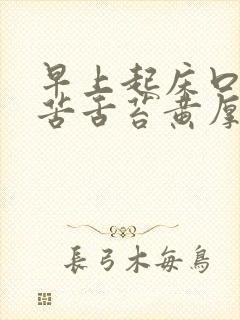 早上起床口
苦舌苔黄厚
長弓木每鳥